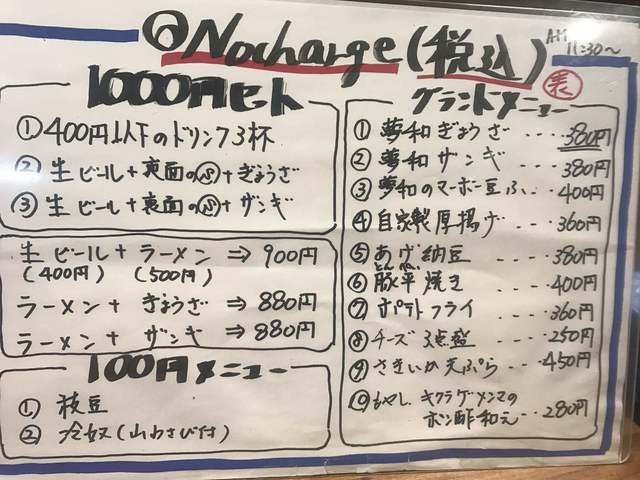 ◎Nocharge(税込)
AM 11:30〜
表
1000円セット
①400円以下のドリンク3杯
②生ビール+裏面のⓈ+ぎょうざ
③生ビール+裏面のⓈ+ザンギ
生ビール+ラーメン⇒900円
(400円) (500円)
ラーメン+ぎょうざ⇒880円
ラーメン+ザンギ⇒880円
100円メニュー
①枝豆
②冷奴(山わさび付)
グランドメニュー
①夢和ぎょうざ...380円
②夢和ザンギ...380円
③夢和のマーボー豆ふ...400円
④自家製厚揚げ...360円
⑤あげ納豆....380円
⑥豚平焼き...400円
とんぺい
⑦ポテトフライ...360円
⑧チーズ3点盛...250円
⑨さきいか天ぷら...450円
⑩もやし、キクラゲ・メンマの
ポン酢和え...280円